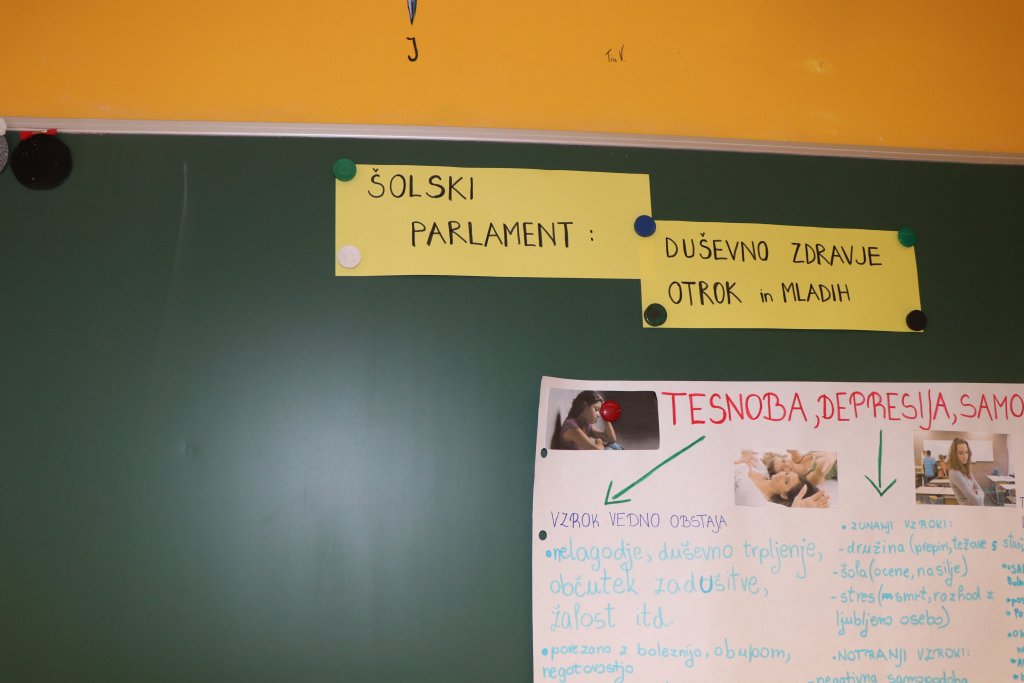 J
Tia V.
ŠOLSKI
PARLAMENT :
DUŠEVNO ZDRAVJE
OTROK in MLADIH
TESNOBA, DEPRESIJA, SAMO
VZROK VEDNO OBSTAJA
•nelagodje, duševno trpljenje,
občutek zadušitve,
žalost itd.
•povezano z boleznijo, obupom,
negotovostjo
• ZUNANJI VZROKI:
- družina (prepiri, težave s star
- šola (ocene, nasilje)
- stres (smrt, razhod z
ljubljeno osebo)
•NOTRANJI VZROKI:
- negativna samopodoba